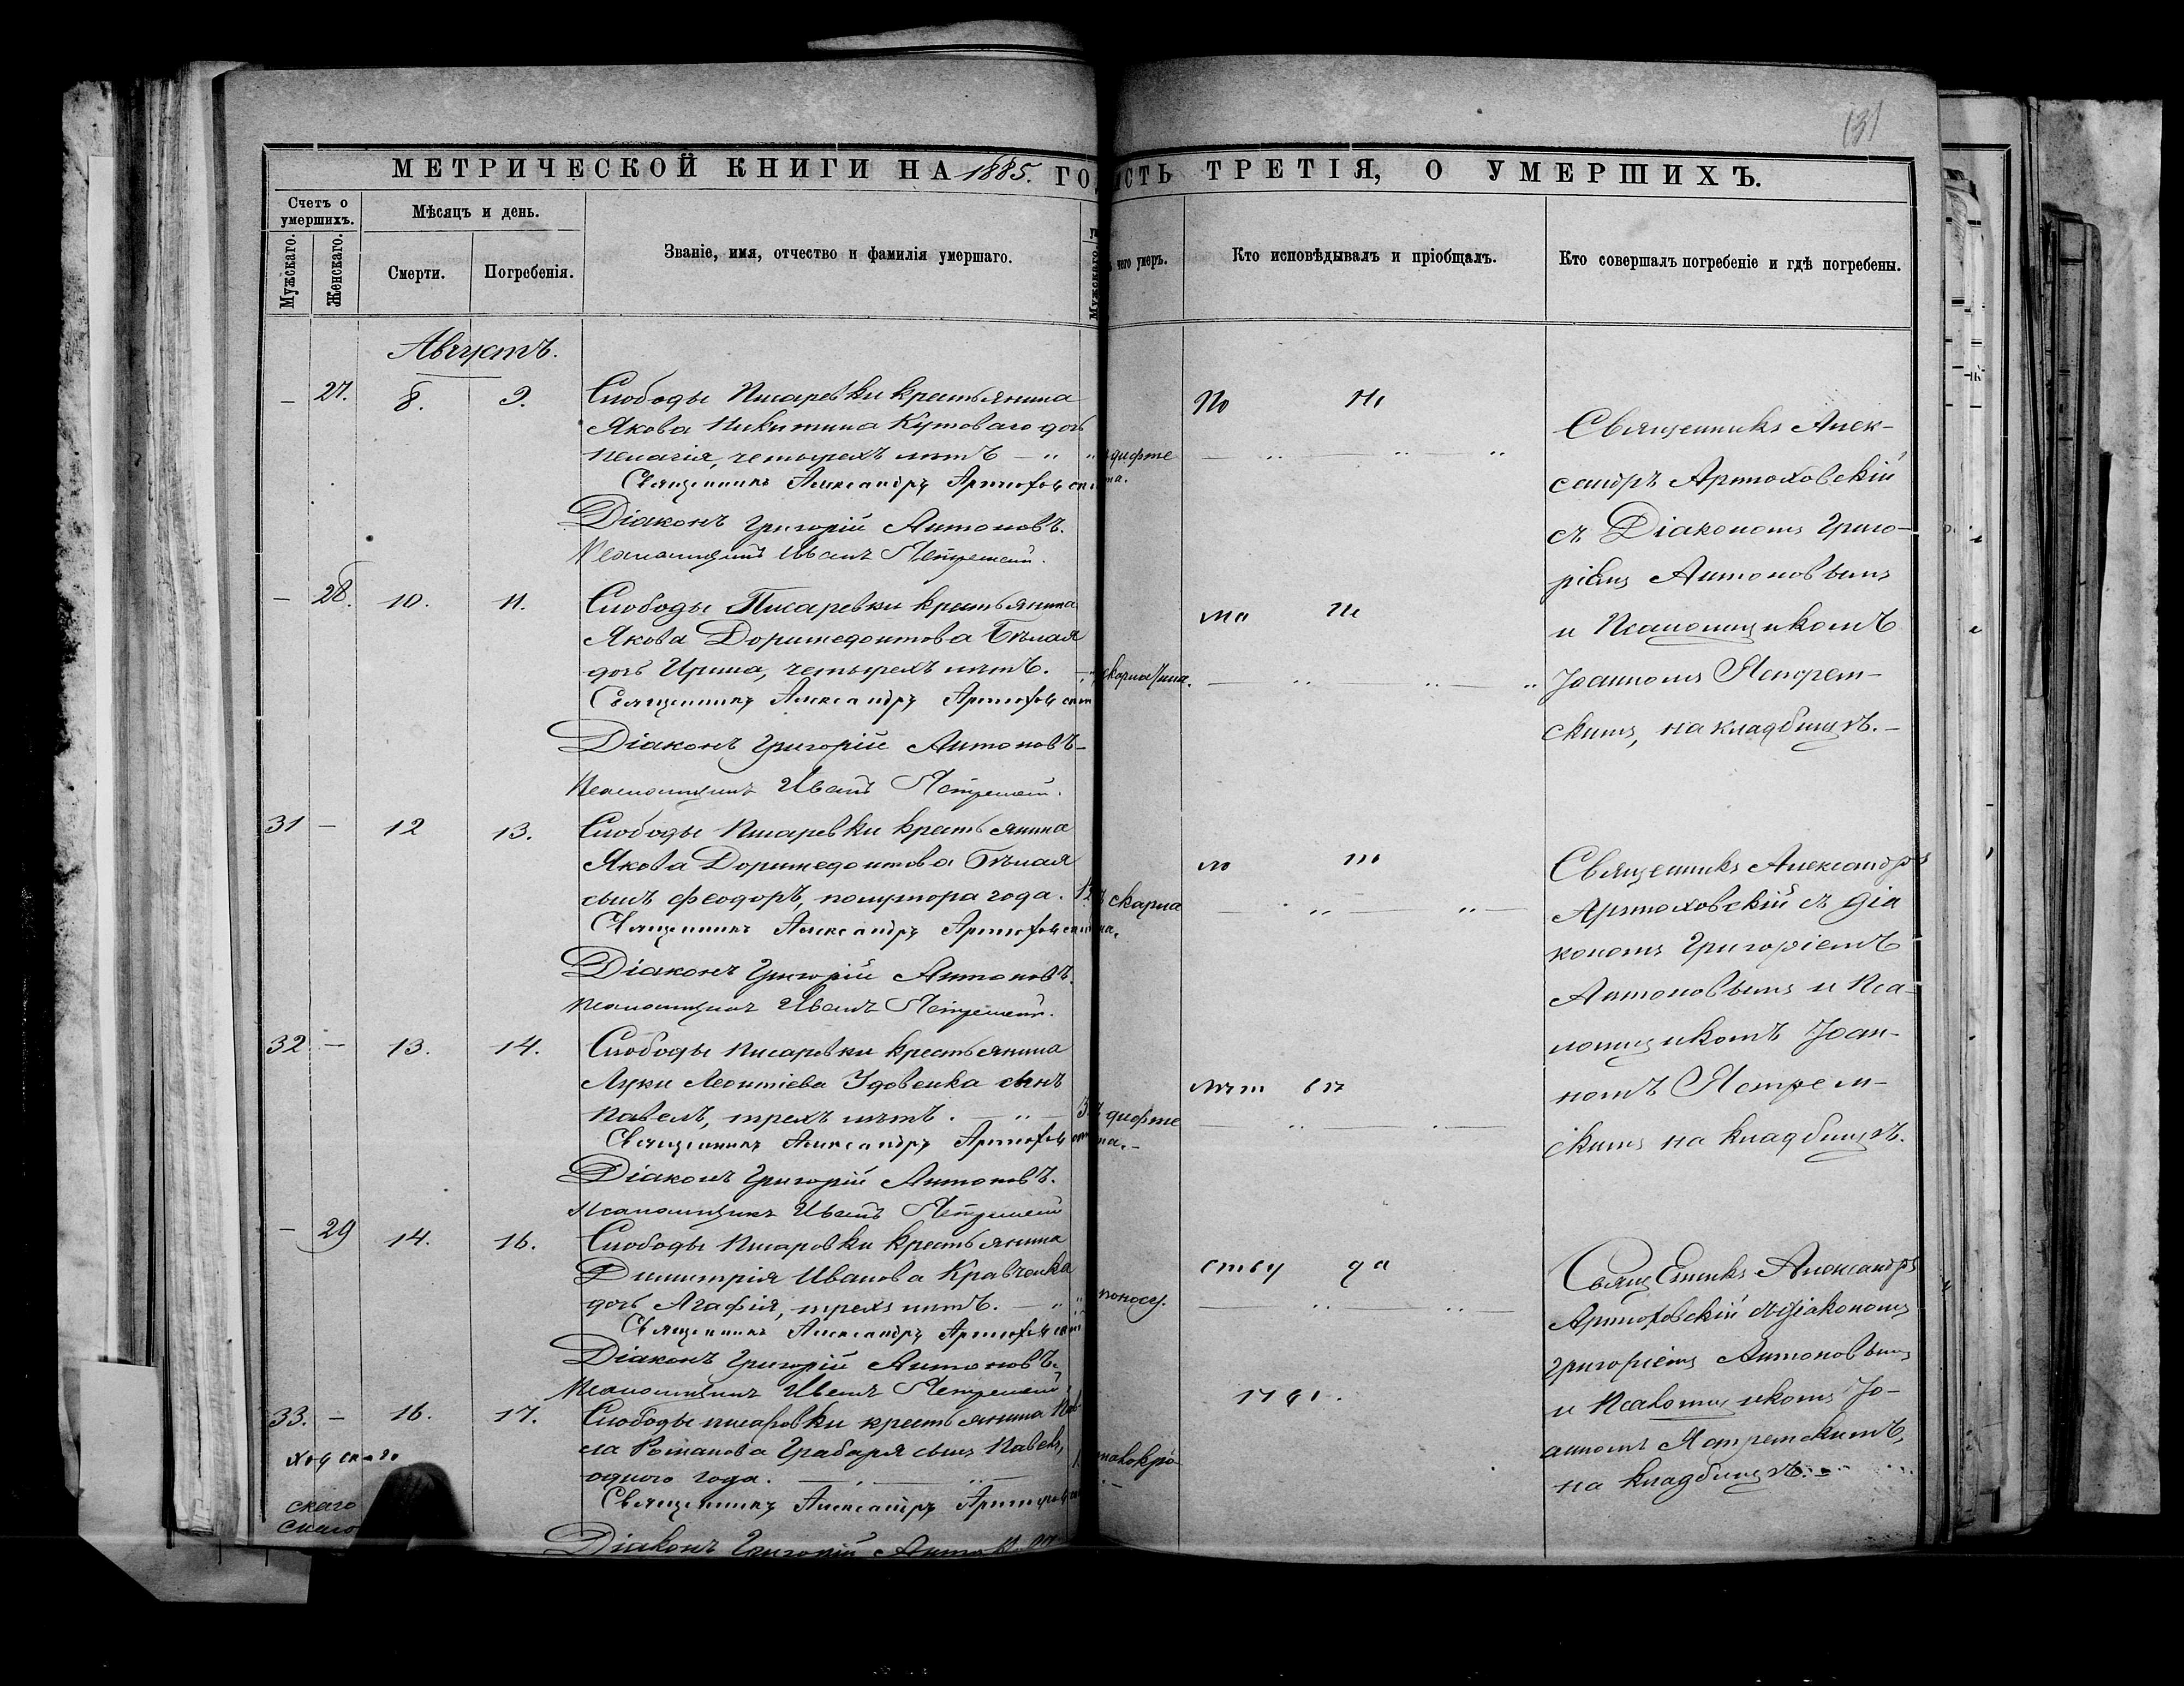 131
МЕТРИЧЕСКОЙ КНИГИ НА 1885. ГО
ИСТЬ ТРЕТІЯ, О УМЕРШИХЪ.
Счетъ о умершихъ.
Мужскаго.
Женскаго.
Мѣсяцъ и день.
Смерти.
Погребенія.
Званіе, имя, отчество и фамилія умершаго.
Мужскаго.
чего умеръ.
Кто исповѣдывалъ и пріобщалъ.
Кто совершалъ погребеніе и гдѣ погребены.
Августъ.
– 27. 8. 9. Слободы Писаревки крестьянина
Якова Никитина Кутоваго дочь
Пелагія, четырехъ лѣтъ — „ „ дифте
Священникъ Александръ Артюховскі на.
Діаконъ Григорій Антоновъ.
Псаломщикъ Иванъ Ястремскій.
По Не
Священникъ Алек-
сандръ Артюховскій
съ Діакономъ Григо-
ріемъ Антоновымъ
и Псаломщикомъ
Іоанномъ Ястрем-
скимъ, на кладбищѣ. –
– 28. 10. 11. Слободы Писаревки крестьянина
Якова Доримедонтова Бѣлая
дочь Ирина, четырехъ лѣтъ. — скарлатина.
Священникъ Александръ Артюховскі
Діаконъ Григорій Антоновъ –
Псаломщикъ Иванъ Ястремскій.
ма ле
31 – 12 13. Слободы Писаревки крестьянина
Якова Доримедонтова Бѣлая
сынъ Феодоръ, полутора года. 1½ скарла
Священникъ Александръ Артюховскі на.
Діаконъ Григорій Антоновъ.
Псаломщикъ Иванъ Ястремскій.
ло
Священникъ Александръ
Артюховскій съ Діа
кономъ Григоріемъ
Антоновымъ и Пса-
ломщикомъ Іоан-
номъ Ястрем-
скимъ на кладбищѣ.
32 – 13. 14. Слободы Писаревки крестьянина
Луки Леонтіева Удовенка сынъ
Павелъ, трехъ лѣтъ. — „ — 3. дифте
Священникъ Александръ Артюховскі на. –
Діаконъ Григорій Антоновъ.
Псаломщикъ Иванъ Ястремскій
лѣт
– 29 14. 16. Слободы Писаровки крестьянина
Димитрія Иванова Кравченка
дочь Агафія, трехъ лѣтъ. — „ „ поносу.
Священникъ Александръ Артюховскі
Діаконъ Григорій Антоновъ.
Псаломщикъ Иванъ Ястремскій.
ству да
Священникъ Александръ
Артюховскій съ Діакономъ
Григоріемъ Антоновымъ
и Псаломщикомъ Іо-
анномъ Ястремскимъ,
на кладбищѣ. –
33. – 16. 17. Слободы Писаровки крестьянина Пав
ла Романова Грабаря сынъ Павелъ,
одного года. — „ — 1.
Священникъ Александръ Артюховскі
Діаконъ Григорій Антоновъ
скаго
скаго